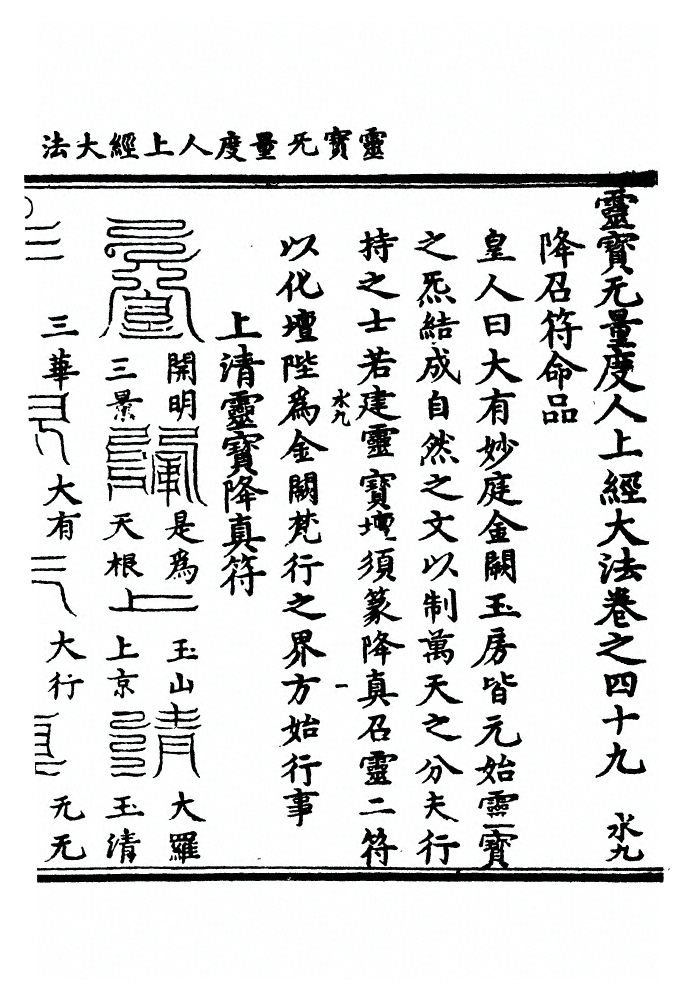 靈寶无量度人上經大法
靈寶无量度人上經大法卷之四十九 水九
降召符命品
皇人曰大有妙庭金闕玉房皆元始靈寶
之炁結成自然之文以制萬天之分夫行
持之士若建靈寶壇須篆降真召靈二符
水九 一
以化壇陛為金闕梵行之界方始行事
上清靈寶降真符
開明 是為 玉山 大羅
三景 天根 上京 玉清
三華 大有 大行 无无